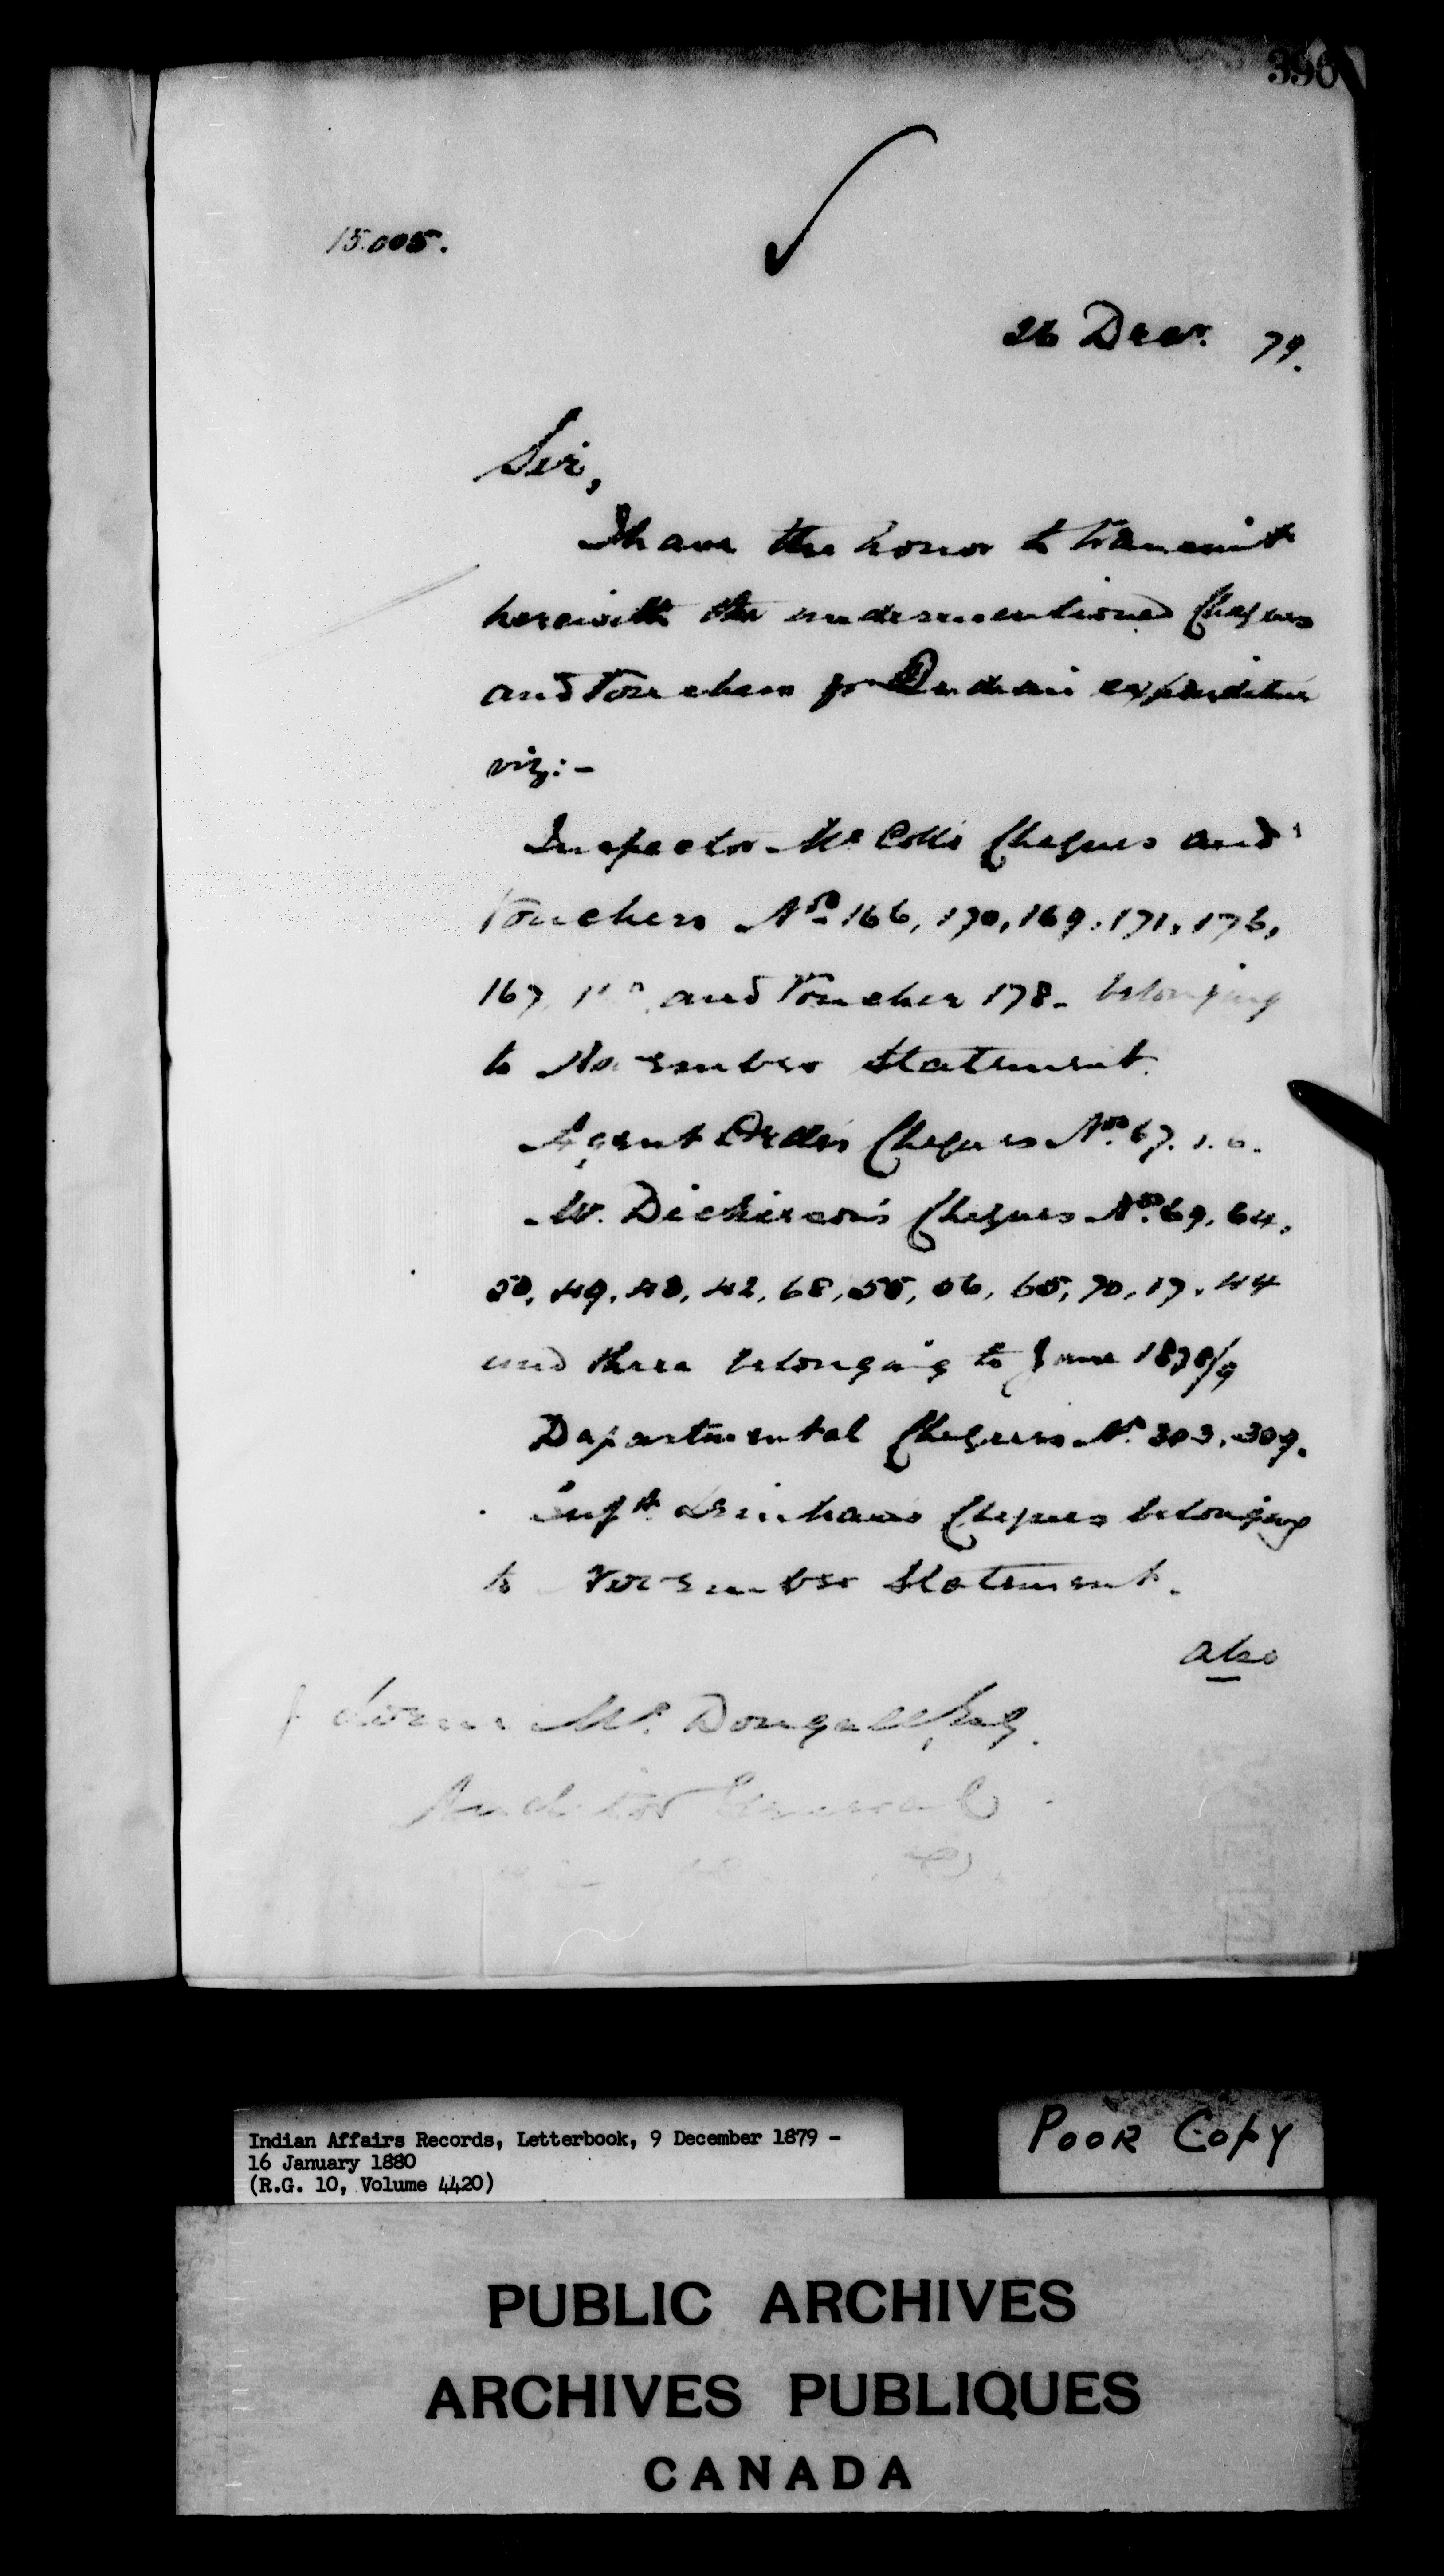 396
15.005.
26 Decr. 79.
Sir,
I have the honor to transmit
herewith the undermentioned Cheques
and Vouchers for Indian expenditure
viz: -
Inspector McColl's Cheques and
Vouchers Nos 166, 170, 169, 171, 176,
167, and Voucher 178 - belonging
to November Statement.
Agent Cheques Nos 67. 1. 6.
Mr. Dickieson's Cheques Nos 69, 64,
50, 49, 48, 42, 68, 55, 56, 65, 70, 17, 44
and three belonging to June 1878/9
Departmental Cheques No. 303, 309.
Supt. Cheques belonging
to November Statement.
also
J Lorne McDougall, Esq.
Auditor General
Indian Affairs Records, Letterbook, 9 December 1879 -
16 January 1880
(R.G. 10, Volume 4420)
POOR COPY
PUBLIC ARCHIVES
ARCHIVES PUBLIQUES
CANADA